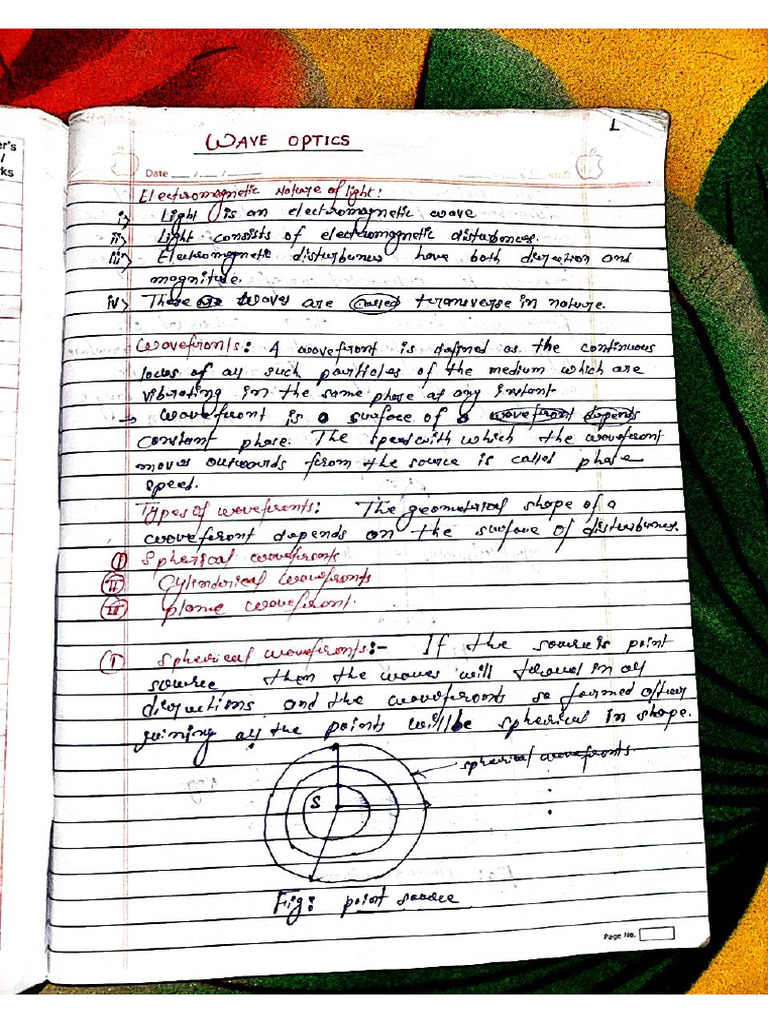 er's
/
ks
L
WAVE OPTICS
Date ___/___/______
Electromagnetic Nature of light:
i> Light is an electromagnetic wave
ii> Light consists of electromagnetic disturbances.
iii> Electromagnetic disturbances have both direction and
magnitude.
iv> These waves are called transverse in nature.
Wavefronts: A wavefront is defined as the continuous
locus of all such particles of the medium which are
vibrating in the same phase at any instant
→ wavefront is a surface of wavefront depends
constant phase. The speed with which the wavefront
moves outwards from the source is called phase
speed.
Types of wavefronts: The geometrical shape of a
wavefront depends on the surface of disturbances.
I Spherical wavefronts
II Cylinderical wavefronts
III plane wavefront.
I Spherical wavefronts:- If the source is point
source, then the waves will travel in all
directions and the wavefronts so formed after
joining all the points will be spherical in shape.
spherical wavefronts
S
Fig: point source
Page No.